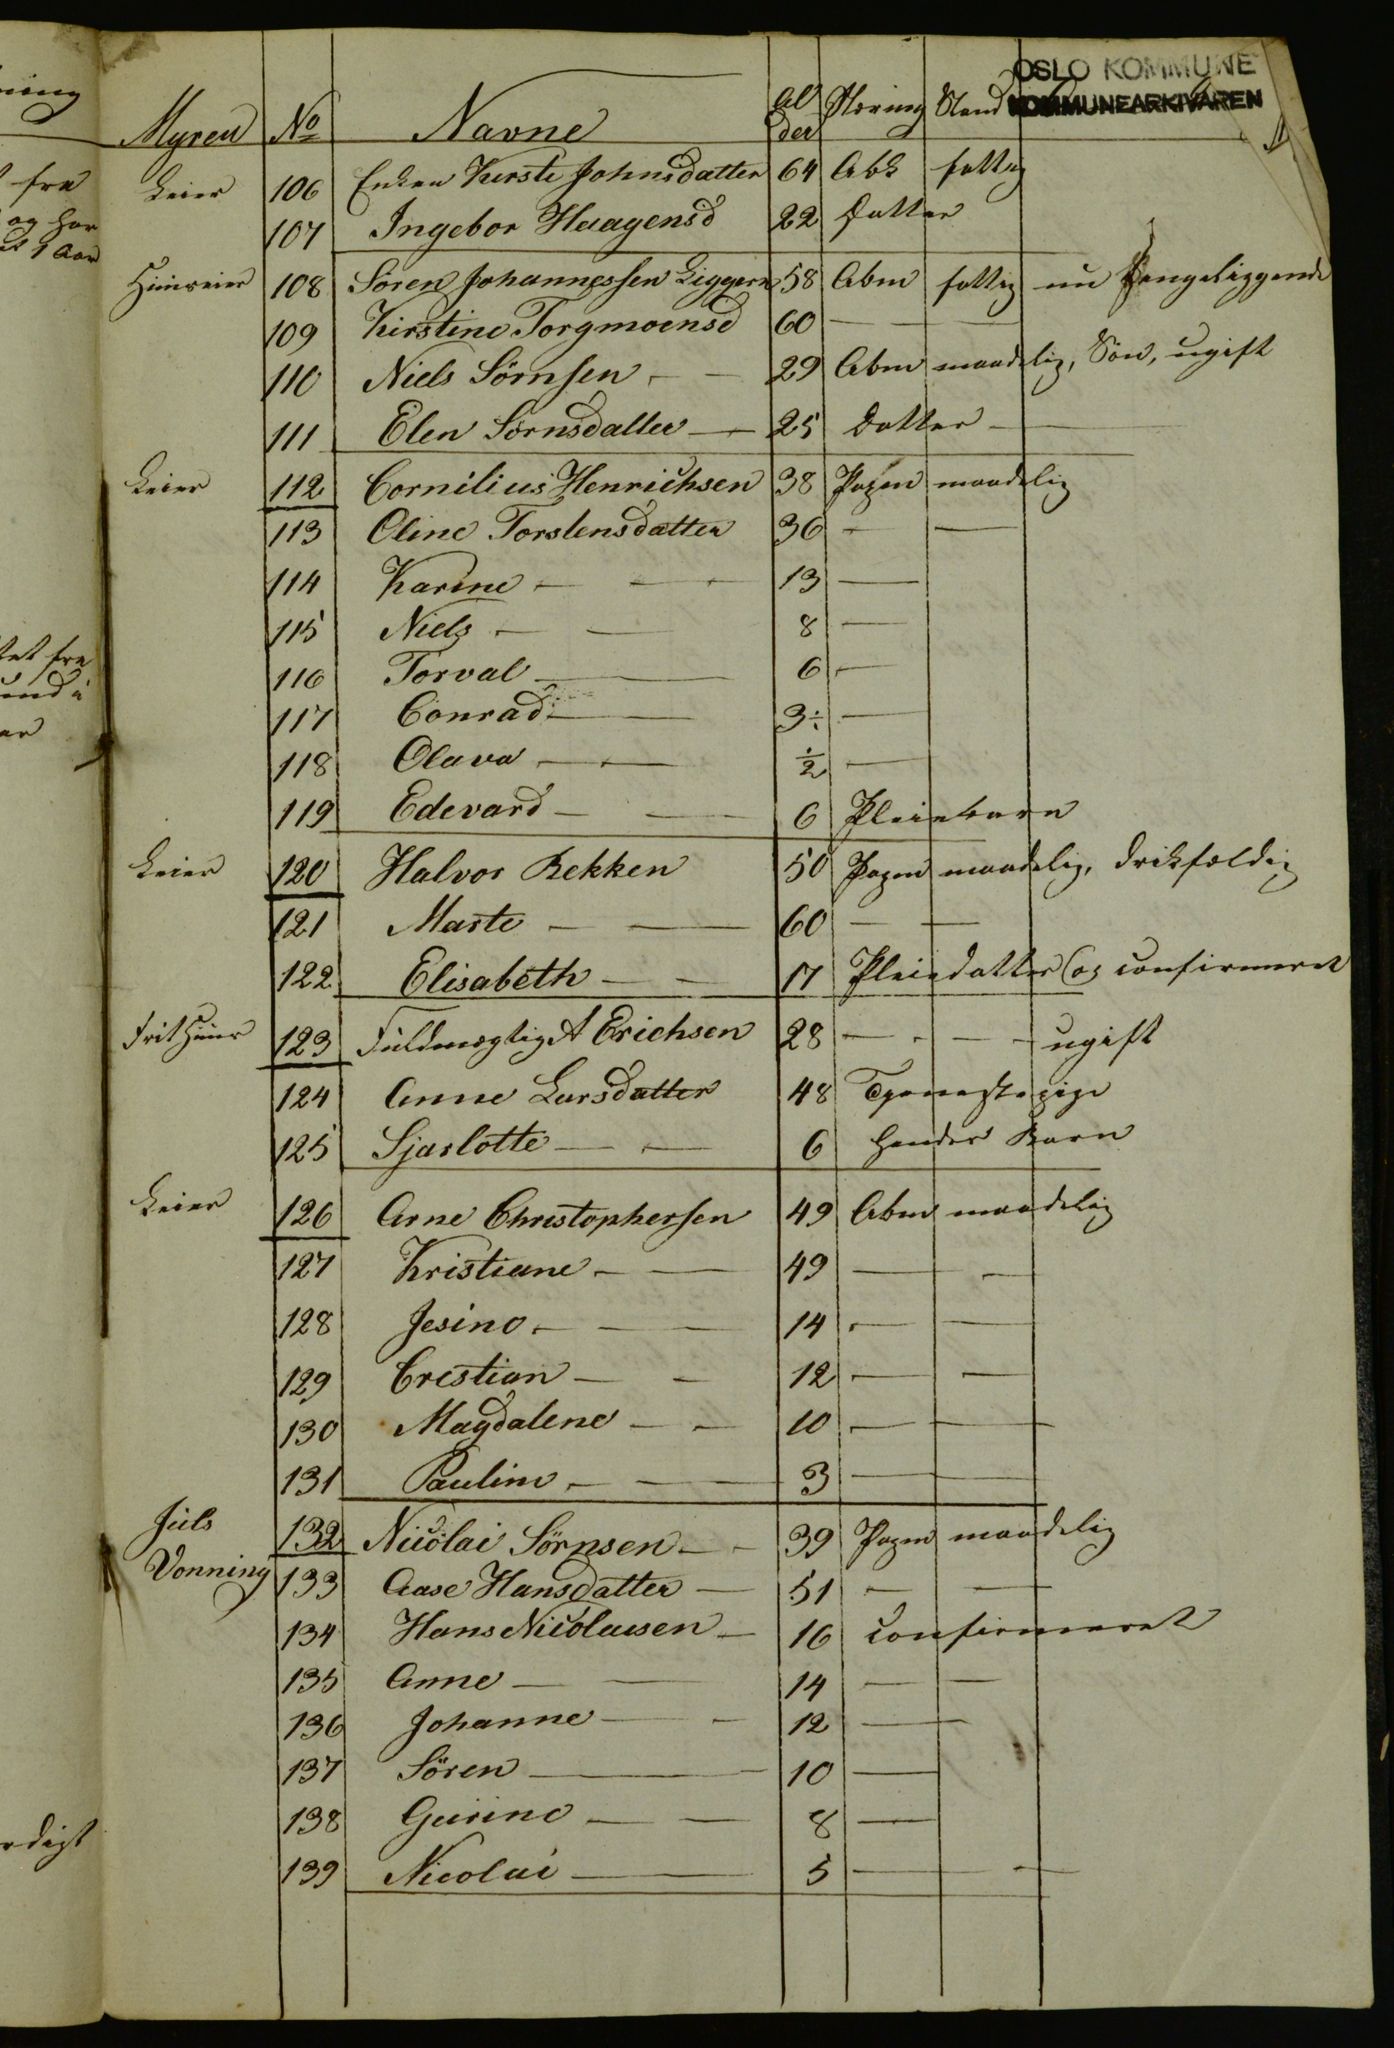 OSLO KOMMUNE
KOMMUNEARKIVAREN
Myren No Navne Al der Næring Stand
Leier 106 Enken Kirsti Johnsdatter 64 Abk fattig
107 Ingebor Haagensd 22 Datter
Huuseier 108 Sören Johannessen Liggern 58 Abm fattig nu Sengeliggende
109 Kirstine Torgmoensd 60 — —
110 Niels Sörnsen — — 29 Abm maadelig, Sön, ugift
111 Elen Sörnsdatter — 25 Datter — —
Leier 112 Cornilius Henrichsen 38 maadelig
113 Oline Torstensdatter 36 — —
114 Karine — — 13 —
115 Niels — — 8 —
116 Torval — — 6 —
117 Conrad — — 3÷ —
118 Olava — — ½ —
119 Edevard — — 6 Pleiebarn
Leier 120 Halvor Bekken 50 maadelig, drikfældig
121 Marte — — 60 — —
122 Elisabeth — — 17 Pleiedatter og confirmeret
Frit Huus 123 Fuldmægtig A Erichsen 28 — — — ugift
124 Anne Larsdatter 48 Tjenestepige
125 Sjarlotte — — 6 Hendes Barn
Leier 126 Arne Christophersen 49 Abm maadelig
127 Kristiane — — 49 — —
128 Jesine — — 14 — —
129 Crestian — — 12 — —
130 Magdalene — — 10 — —
131 Pauline — — 3 — —
Juls 132 Nicolai Sörnsen — — 39 maadelig
Vonning 133 Aase Hansdatter — 51 — —
134 Hans Nicolaisen — 16 confirmeret
135 Anne — — 14 — —
136 Johanne — — 12 —
137 Sören — 10 —
138 Gurine — — 8 —
139 Nicolai — 5 — —
fra
og har
1 Aar
tet fra